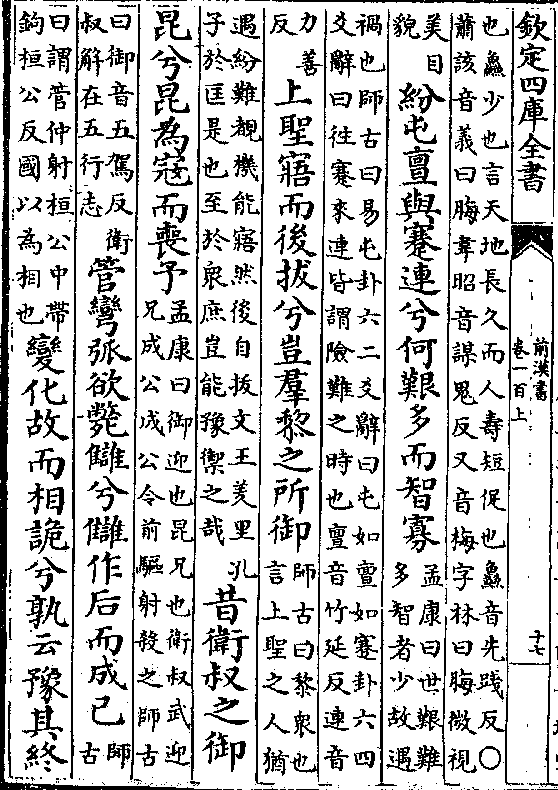 欽定四庫全書
前漢書
卷一百上
十七
也鱻少也言天地長久而人壽短促也鱻音先踐反〇
蕭該音義曰䀲韋昭音謀鬼反又音梅字林曰䀲微視
美目
貌
紛屯亶與蹇連兮何艱多而智寡
孟康曰世艱難
多智者少故遇
禍也師古曰易屯卦六二爻辭曰屯如亶如蹇卦六四
爻辭曰往蹇來連皆謂險難之時也亶音竹延反連音
力善
反
上聖寤而後拔兮豈羣黎之所御
師古曰黎衆也
言上聖之人猶
遇紛難覩機能寤然後自拔文王羑里孔
子於匡是也至於衆庶豈能豫禦之哉
昔衛叔之御
昆兮昆為寇而喪予
孟康曰御迎也昆兄也衛叔武迎
兄成公成公令前驅射殺之師古
曰御音五駕反衛
叔解在五行志
管彎弧欲斃讎兮讎作后而成已
師
古
曰謂管仲射桓公中帶
鉤桓公反國以為相也
變化故而相詭兮孰云豫其終